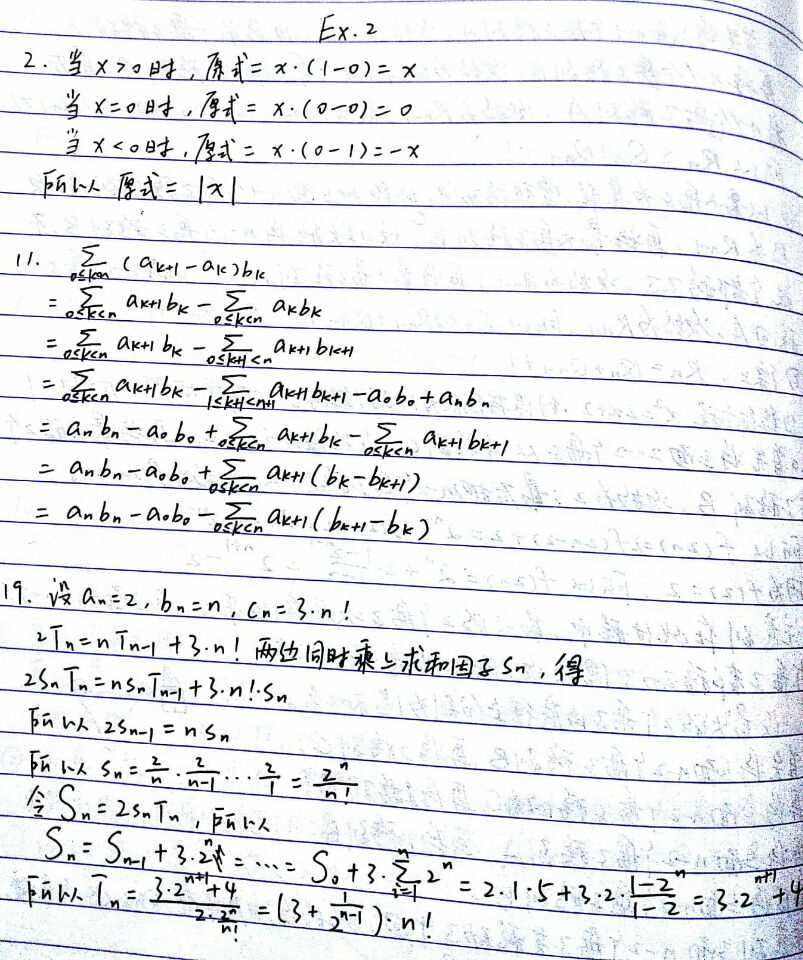 Ex.2
2. 当 x>0 时, 原式= x·(1-0)= x
当 x=0 时, 原式= x·(0-0)=0
当 x<0 时, 原式= x·(0-1)=-x
所以 原式= |x|
11. ∑_{0≤k<n} (a_{k+1}-a_k)b_k
= ∑_{0≤k<n} a_{k+1}b_k - ∑_{0≤k<n} a_k b_k
= ∑_{0≤k<n} a_{k+1}b_k - ∑_{0≤k+1<n} a_{k+1}b_{k+1}
= ∑_{0≤k<n} a_{k+1}b_k - ∑_{1≤k+1<n+1} a_{k+1}b_{k+1} - a_0b_0 + a_nb_n
= a_nb_n - a_0b_0 + ∑_{0≤k<n} a_{k+1}b_k - ∑_{0≤k<n} a_{k+1}b_{k+1}
= a_nb_n - a_0b_0 + ∑_{0≤k<n} a_{k+1}(b_k-b_{k+1})
= a_nb_n - a_0b_0 - ∑_{0≤k<n} a_{k+1}(b_{k+1}-b_k)
19. 设 a_n=2, b_n=n, c_n=3·n!
2T_n=nT_{n-1}+3·n! 两边同时乘上求和因子 s_n, 得
2s_nT_n=ns_nT_{n-1}+3·n!·s_n
所以 2s_{n-1}=ns_n
所以 s_n=2/n·2/(n-1)···2/1=2^n/n!
令 S_n=2s_nT_n, 所以
S_n=S_{n-1}+3·2^n=···=S_0+3·∑_{i=1}^{n}2^n=2·1·5+3·2·(1-2^n)/(1-2)=3·2^{n+1}+4
所以 T_n=(3·2^{n+1}+4)/(2·2^n/n!)=(3+1/2^{n-1})·n!